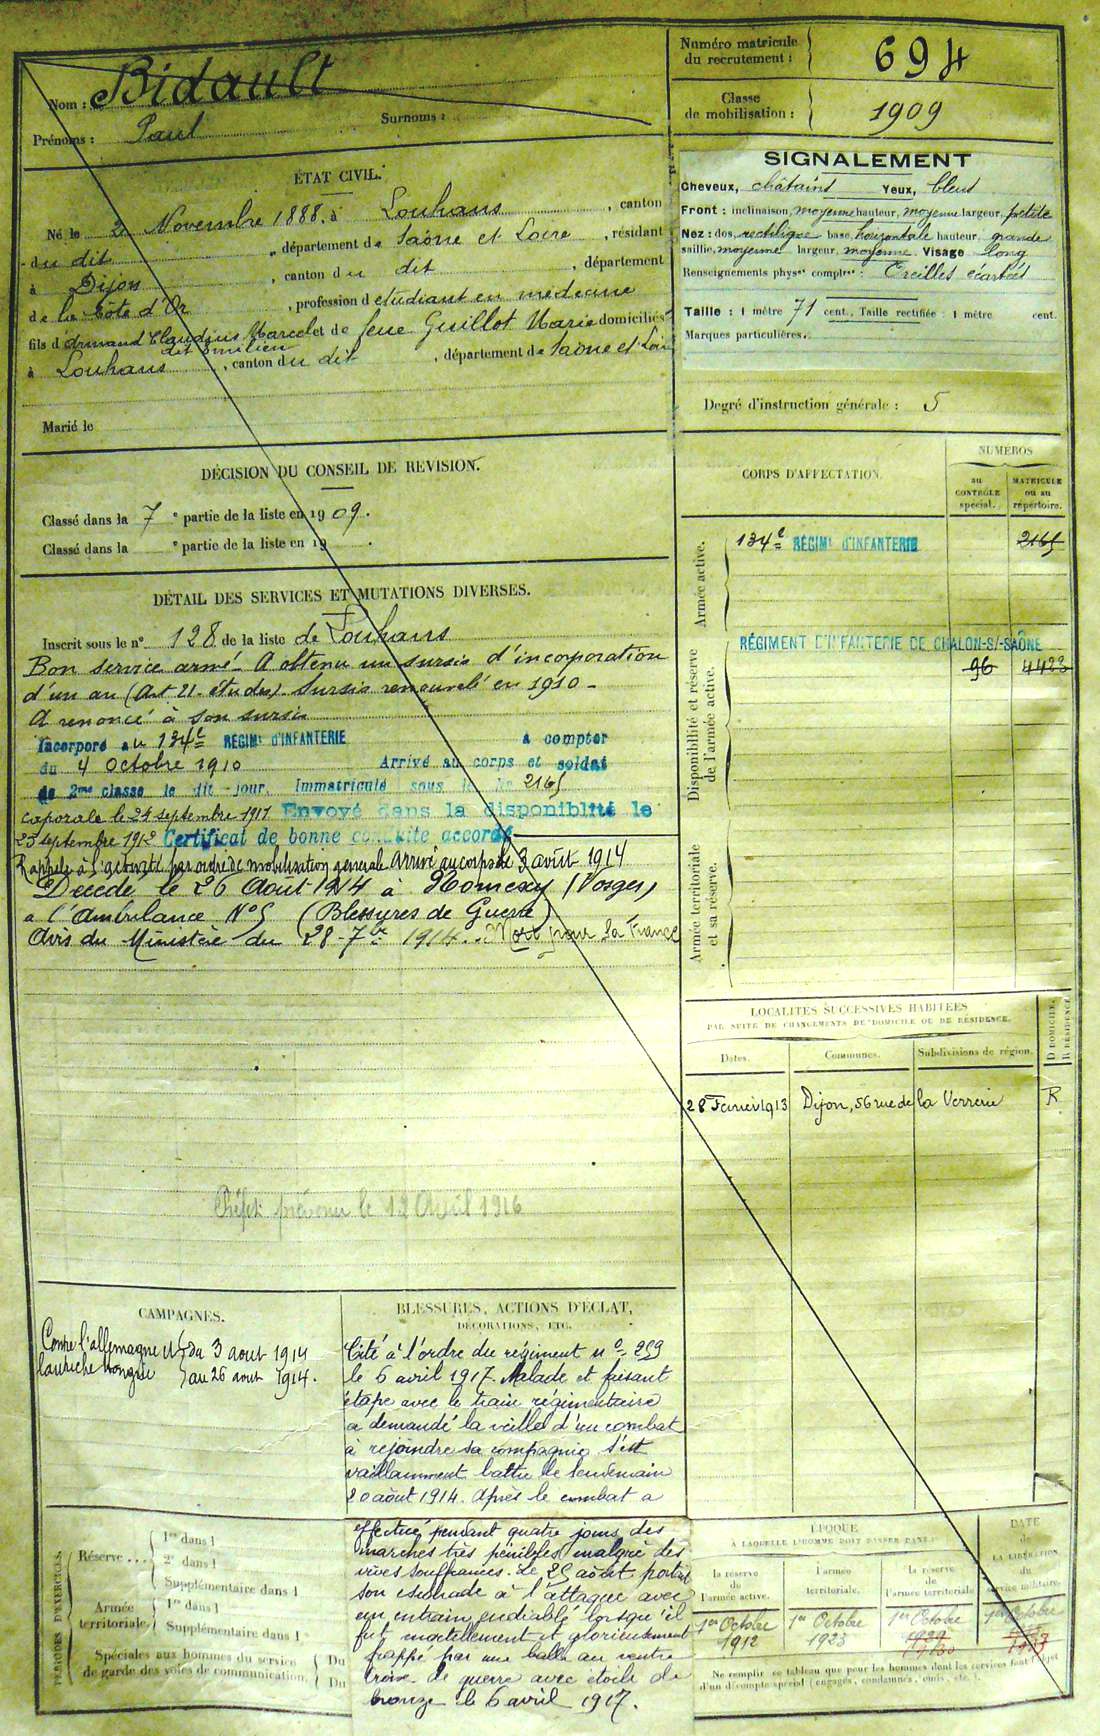 Nom : Bidault
Prénoms : Paul Surnoms :
Numéro matricule du recrutement : 694
Classe de mobilisation : 1909
ÉTAT CIVIL.
Né le 2 Novembre 1888, à Louhans, canton
du dit, département de Saône et Loire, résidant
à Dijon, canton du dit, département
de la Côte d'Or, profession d'étudiant en médecine
fils d'Armand Claudius Marcel et de feue Guillot Marie domiciliés
dit Emilien
à Louhans, canton du dit, département de Saône et Loire
Marié le
SIGNALEMENT
Cheveux, châtains Yeux, bleus
Front : inclinaison, moyenne hauteur, moyenne largeur, petite
Nez : dos, rectiligne base, horizontale hauteur, grande
saillie, moyenne largeur, moyenne Visage long
Renseignements physes complres : Oreilles écartées
Taille : 1 mètre 71 cent., Taille rectifiée : 1 mètre cent.
Marques particulières.
Degré d'instruction générale : 5
DÉCISION DU CONSEIL DE REVISION.
Classé dans la 7e partie de la liste en 1909.
Classé dans la e partie de la liste en 19 .
CORPS D'AFFECTATION.
NUMÉROS
au CONTRÔLE spécial.
MATRICULE ou au répertoire.
Armée active.
134e RÉGIMt D'INFANTERIE 2165
Disponibilité et réserve de l'armée active.
RÉGIMENT D'INFANTERIE DE CHALON-S/-SAÔNE
96 4423
Armée territoriale et sa réserve.
DÉTAIL DES SERVICES ET MUTATIONS DIVERSES.
Inscrit sous le n° 128 de la liste de Louhans
Bon service armé. A obtenu un sursis d'incorporation
d'un an (Art 21. études). Sursis renouvelé en 1910 -
A renoncé à son sursis
Incorporé au 134e RÉGIMt D'INFANTERIE à compter
du 4 octobre 1910 Arrivé au corps et soldat
de 2me classe le dit jour. Immatriculé sous le No 2165
caporal le 24 septembre 1911 Envoyé dans la disponibilité le
25 septembre 1912 Certificat de bonne conduite accordé
Rappelé à l'activité par ordre de mobilisation générale Arrivé au corps le 3 août 1914
Décédé le 26 Août 1914 à Nomexy (Vosges)
à l'Ambulance N°5 (Blessures de Guerre)
Avis du Ministère du 28-7bre 1914. Mort pour la France
Préfet prévenu le 12 Avril 1916
LOCALITÉS SUCCESSIVES HABITÉES
PAR SUITE DE CHANGEMENTS DE DOMICILE OU DE RÉSIDENCE.
Dates. Communes. Subdivisions de région. D DOMICILE. R RÉSIDENCE.
28 Février 1913 Dijon, 56 rue de la Verrerie R
CAMPAGNES.
Contre l'allemagne et du 3 aout 1914
l'autriche Hongrie au 26 aout 1914.
BLESSURES, ACTIONS D'ÉCLAT,
DÉCORATIONS, ETC.
Cité à l'ordre du régiment n° 259
le 6 avril 1917. Malade et faisant
étape avec le train régimentaire
a demandé la veille d'un combat
à rejoindre sa compagnie s'est
vaillamment battu le lendemain
20 août 1914. Après le combat a
effectué pendant quatre jours des
marches très pénibles malgré des
vives souffrances. Le 25 août porta
son escouade à l'attaque avec
un entrain endiablé lorsqu'il
fut mortellement et glorieusement
frappé par une balle au ventre
croix de guerre avec étoile de
bronze le 6 avril 1917.
PÉRIODES D'EXERCICES.
Réserve ...
1re dans l
2e dans l
Supplémentaire dans l
Armée territoriale.
1re dans l
Supplémentaire dans l
Spéciales aux hommes du service de garde des voies de communication.
Du
Du
ÉPOQUE
À LAQUELLE L'HOMME DOIT PASSER DANS :
la réserve de l'armée active.
l'armée territoriale.
la réserve de l'armée territoriale
DATE de LA LIBÉRATION du service militaire.
1er Octobre 1912
1er Octobre 1923
1er Octobre
1er Octobre
Ne remplir ce tableau que pour les hommes dont les services font l'objet
d'un décompte spécial (engagés, condamnés, omis, etc.).